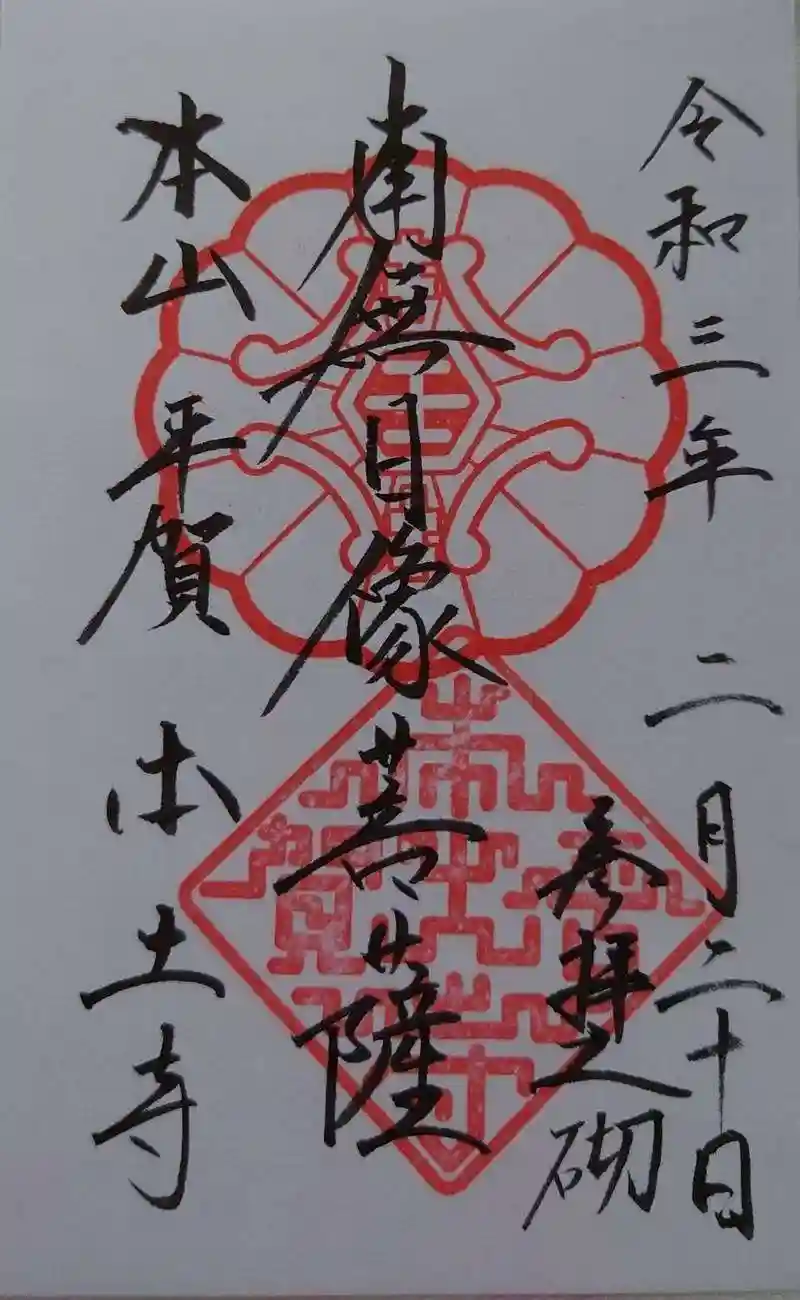 令和三年 二月二十日
参拝之砌
南無日像菩薩
本山 平賀 本土寺